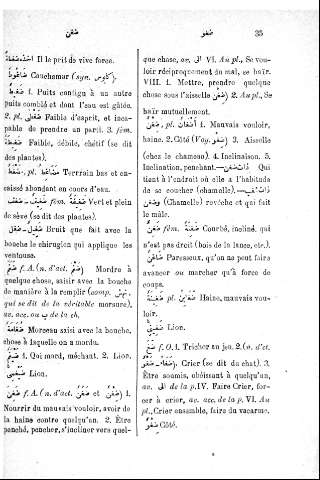 ضغن
ضغو
35
Il le prit de vive force.
ضاغوط Cauchemar (syn. كابوس).
ضغيط 1. Puits contigu à un autre
puits comblé et dont l'eau est gâtée.
2. pl. ضغطى Faible d'esprit, et inca-
pable de prendre un parti. 3. fém.
ضغيطة Faible, débile, chétif (se dit
des plantes).
Terrrain bas et en-
caissé abondant en cours d'eau.
fém. Vert et plein
de sève (se dit des plantes).
Bruit que fait avec la
bouche le chirurgien qui applique les
ventouses.
ضغم f. A. (n. d'act. ضغم) Mordre à
quelque chose, saisir avec la bouche
de manière à la remplir (comp.
qui se dit de la véritable morsure),
av. acc. ou ب de la ch.
ضغامة Morceau saisi avec la bouche,
chose à laquelle on a mordu.
ضيغم 1. Qui mord, méchant. 2. Lion.
ضيغمي Lion.
ضغن f. A. (n. d'act. ضغن et ضغن) 1.
Nourrir du mauvais vouloir, avoir de
la haine contre quelqu'un. 2. Être
penché, pencher, s'incliner vers quel-
que chose, av. الى VI. Au pl., Se vou-
loir réciproquement du mal, se haïr.
VIII. 1. Mettre, prendre quelque
chose sous l'aisselle (ضغن) 2. Au pl., Se
haïr mutuellement.
ضغن, pl. أضغان 1. Mauvais vouloir,
haine. 2. Côté (Voy. ضغو). 3. Aisselle
(chez le chameau). 4. Inclinaison. 5.
Inclination, penchant. — Qui
tient à l'endroit où elle a l'habitude
de se coucher (chamelle). —
(Chamelle) revêche et qui fait
le mâle.
ضغن fém. ضغنة Courbé, incliné, qui
n'est pas droit (bois de la lance, etc.).
ضاغن Paresseux, qu'on ne peut faire
avancer ou marcher qu'à force de
coups.
ضغينة pl. ضغائن Haine, mauvais vou-
loir.
Lion.
ضغا f. O. 1. Tricher au jeu. 2. (n. d'act.
Crier (se dit du chat). 3.
Être soumis, obéissant à quelqu'un,
av. الى de la p. IV. Faire Crier, for-
cer à crier, av. acc. de la p. VI. Au
pl., Crier ensemble, faire du vacarme.
ضغو Côté.